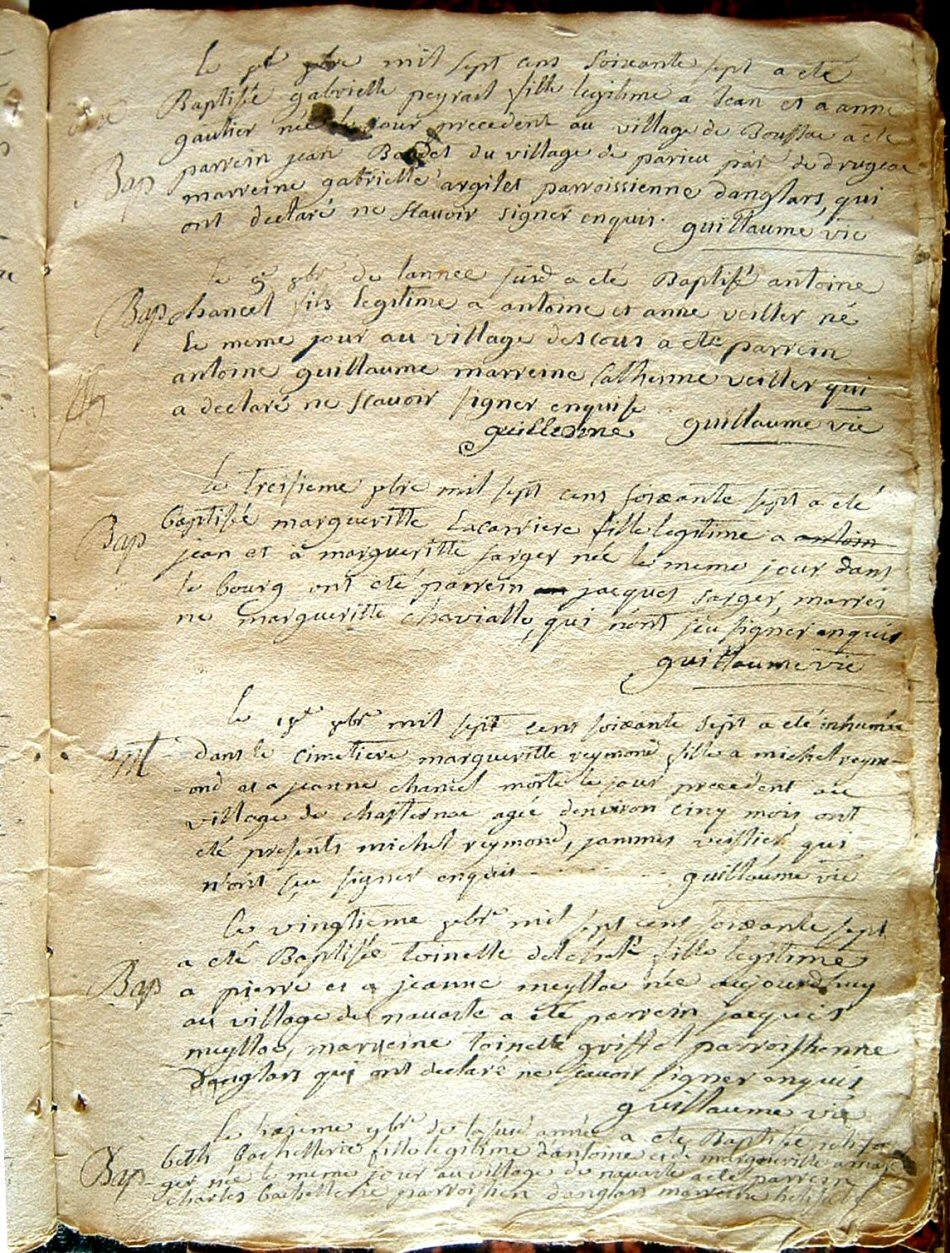 Le pr 9bre mil sept cens soixante sept a eté
Bap
Baptisée gabrielle peyrat fille legitime a Jean et a anne
gautier née le jour precedent au village de Boussac a eté
parrein jean Bordet du village de parieu par de drugeac
marreine gabrielle argiles parroissienne danglars, qui
ont declaré ne scavoir signer enquis. guillaume vié
le 9bre de lannée susd a eté Baptisé antoine
Bap
chancel fils legitime a antoine et anne veiller né
le meme jour au village descous a eté parrein
antoine guillaume marreine Catherine veiller qui
a declaré ne scavoir signer enquise
guilleaume guillaume vié
le treisieme 9bre mil sept cens soixante sept a eté
Bap
baptisée margueritte Lacarriere fille legitime a antoin
jean et a margueritte sarger née le meme jour dans
le bourg ont eté parrein jacques sarger, marrei
ne margueritte chavialle, qui nont sçu signer enquis
guillaume vié
le 9bre mil sept cens soixante sept a eté inhumée
dans le cimetiere margueritte reymond fille a michel reym-
ond et a jeanne chancel morte le jour precedent au
village de chasternac agée denviron cinq mois ont
eté presents michel reymond, jammes veillier qui
n'ont sçu signer enquis guillaume vié
le vingtieme 9bre mil sept cens soixante sept
Bap
a eté Baptisée toinette fille legitime
a pierre et a jeanne meyllac née aujourdhuy
au village de navaste a eté parrein jacques
meyllac, marreine toinette griffel parroissienne
danglars qui ont declaré ne scavoir signer enquis
guillaume vié
le 9bre de lasusd année a eté Baptisée
Bap
beth bachellerie fille legitime dantoine et de margueritte
ger née le meme jour au village de navaste a eté parrein
charles bachellerie parroissien danglars marreine